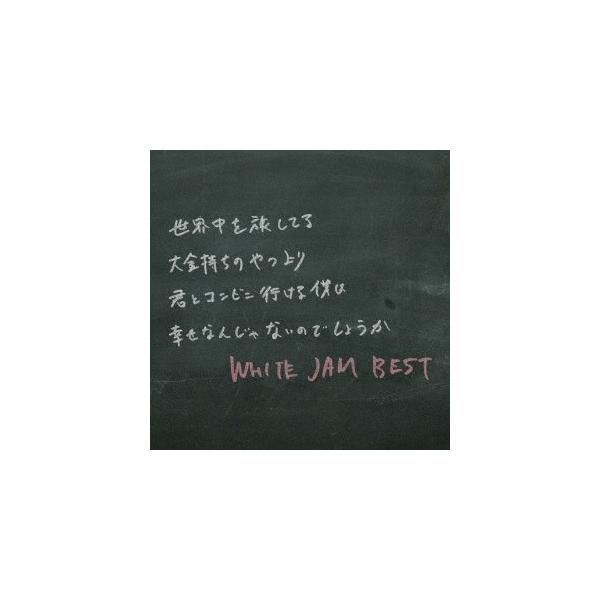 世界中を旅してる
大金持ちのやつより
君とコンビニ行ける僕は
幸せなんじゃないのでしょうか
WHITE JAM BEST